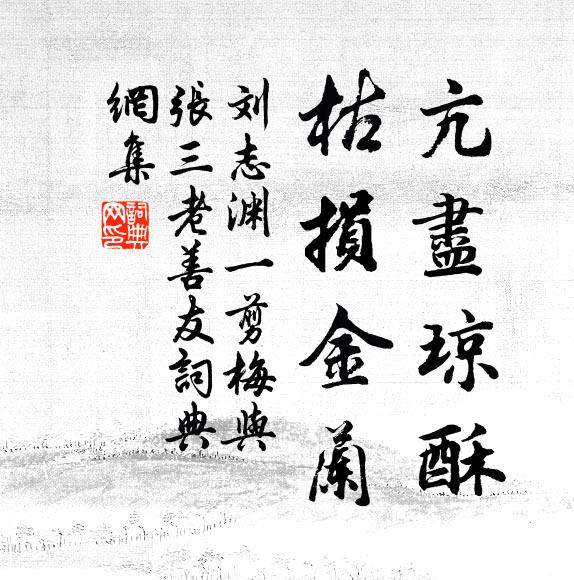 亢盡琼酥
枯損金蘭
刘志渊一剪梅與
張三老善友詞典
網集
詞典
网印